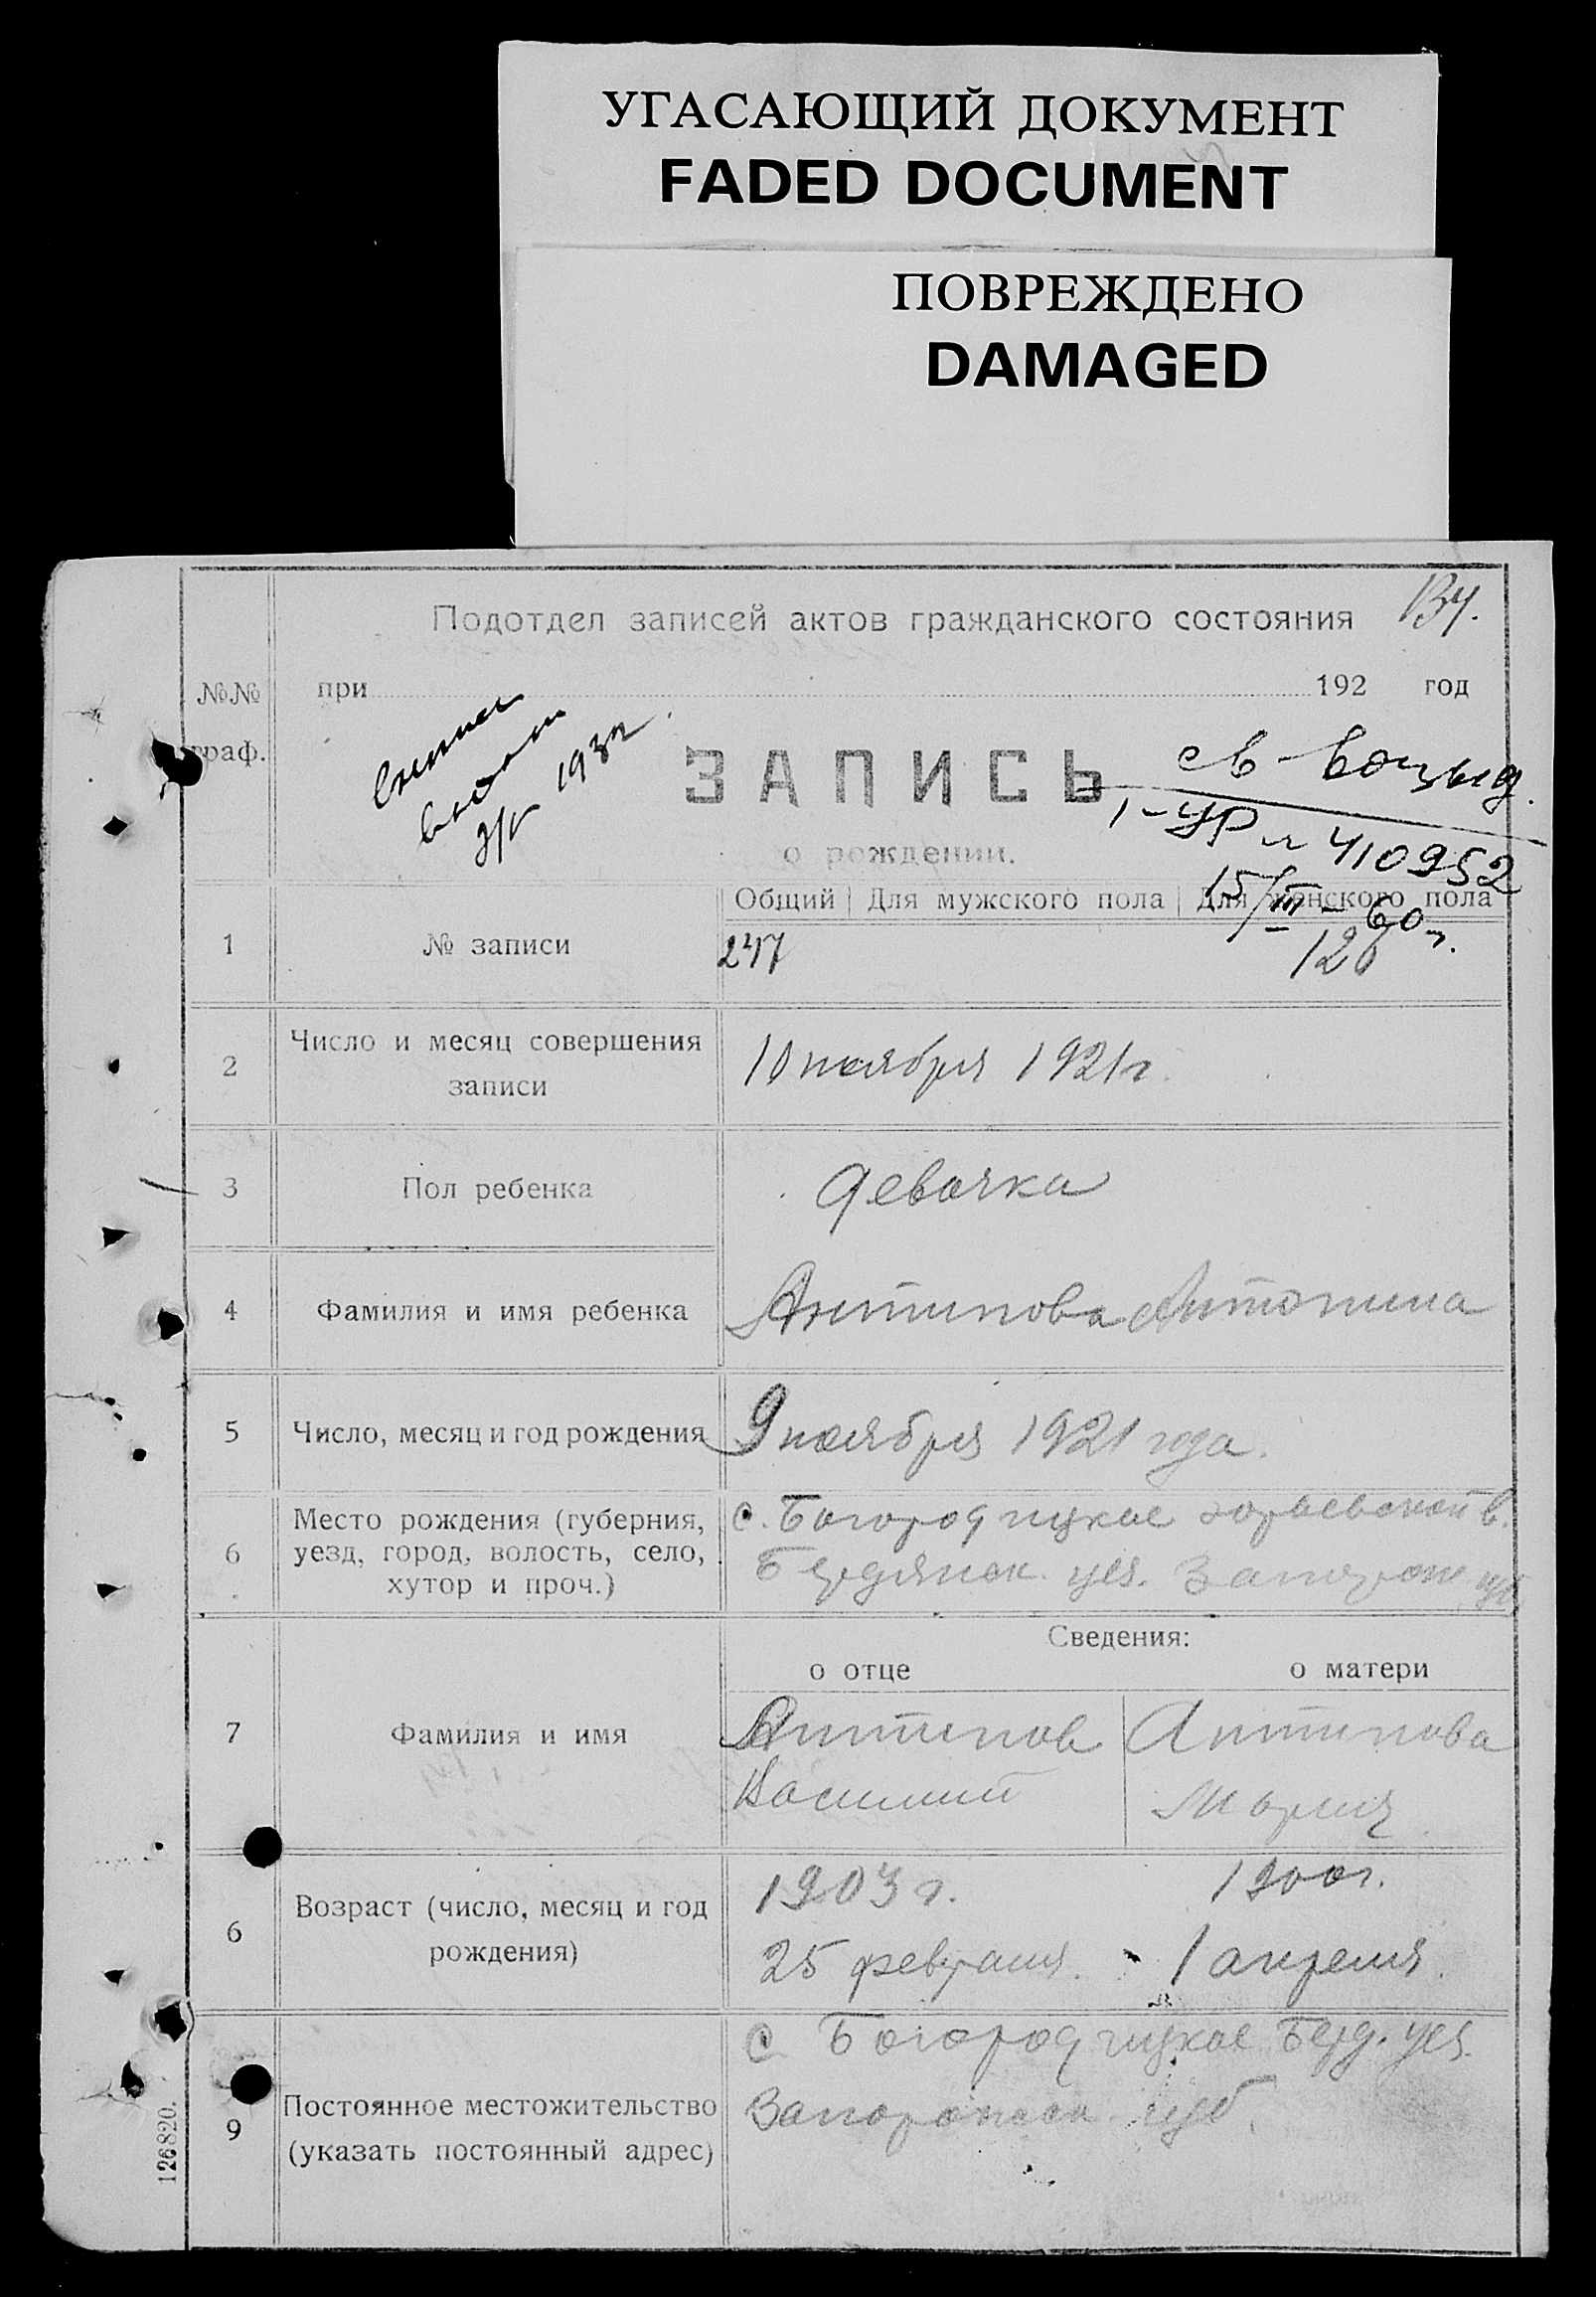 УГАСАЮЩИЙ ДОКУМЕНТ
FADED DOCUMENT
ПОВРЕЖДЕНО
DAMAGED
Подотдел записей актов гражданского состояния
№№ граф.
при 192 год
1932
ЗАПИСЬ
о рождении.
св-во выд.
1-УР № 410952
15/III-60 г.
Общий Для мужского пола Для женского пола
1 № записи 247 126
2 Число и месяц совершения записи
10 ноября 1921 г.
3 Пол ребенка девочка
4 Фамилия и имя ребенка Антипова Антонина
5 Число, месяц и год рождения 9 ноября 1921 года.
6 Место рождения (губерния, уезд, город, волость, село, хутор и проч.)
с. Богородицкое в.
Бердянск. уез. Запорож губ.
Сведения:
о отце о матери
7 Фамилия и имя
Антипов Антипова
Василий Мария
6 Возраст (число, месяц и год рождения)
1903 г. 1900 г.
25 февраля. 1 апреля.
9 Постоянное местожительство (указать постоянный адрес)
с Богородицкое Берд. уез.
Запорожск губ.
126820.